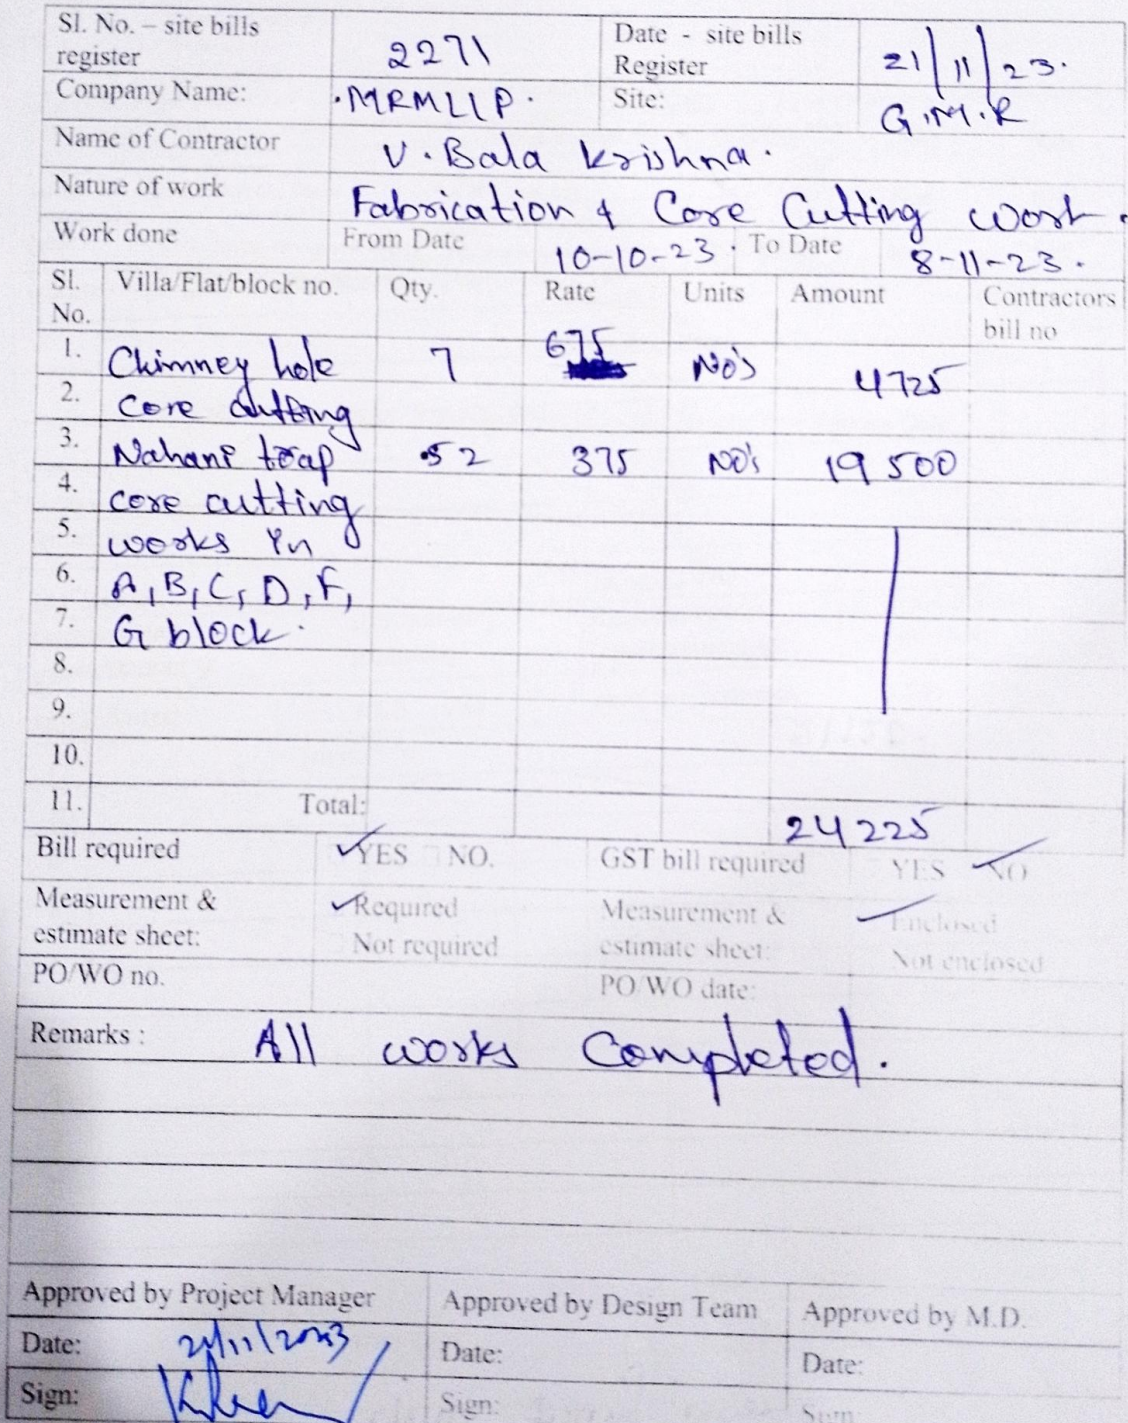 Sl. No. – site bills register 2271 Date - site bills Register 21/11/23.
Company Name: .MRMLLP. Site: G.M.R
Name of Contractor V. Bala Krishna.
Nature of work Fabrication & Core Cutting work.
Work done From Date 10-10-23. To Date 8-11-23.
Sl. No. Villa/Flat/block no. Qty. Rate Units Amount Contractors bill no
1. Chimney hole 7 675 No's 4725
2. core cutting
3. Nahani trap 52 375 No's 19500
4. core cutting
5. works in
6. A, B, C, D, F,
7. G block.
8.
9.
10.
11. Total: 24225
Bill required YES NO. GST bill required YES NO
Measurement & estimate sheet: Required Not required Measurement & estimate sheet: Enclosed Not enclosed
PO/WO no. PO/WO date:
Remarks : All works Completed.
Approved by Project Manager Approved by Design Team Approved by M.D.
Date: 21/11/2023 Date: Date:
Sign: Sign: Sign: